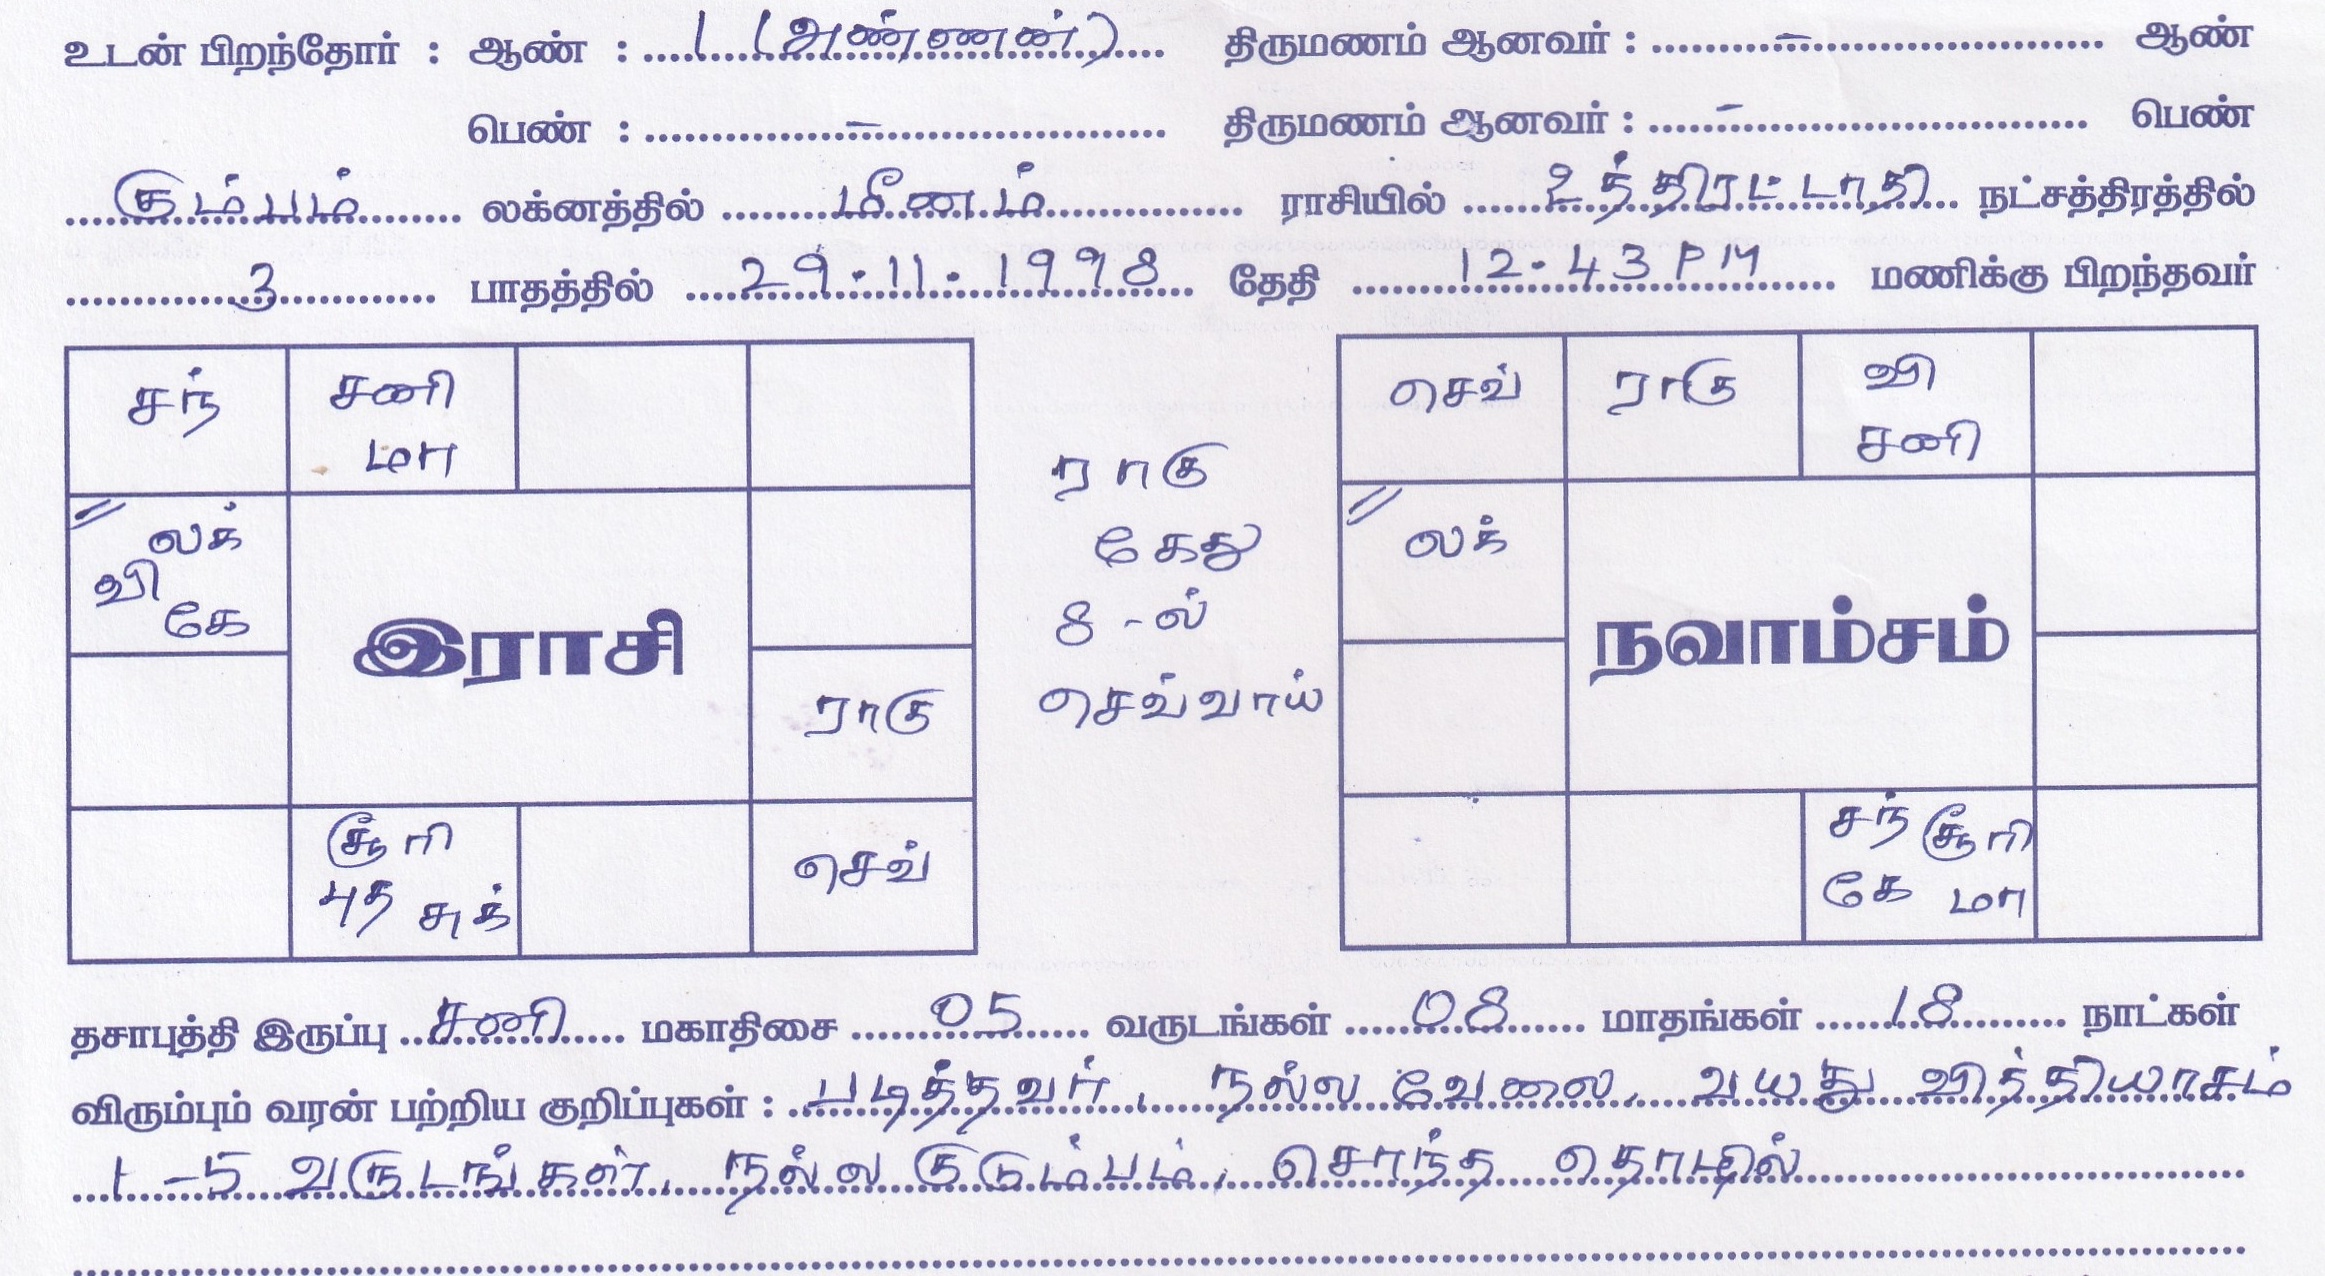 உடன் பிறந்தோர் : ஆண் : 1 (அண்ணன்) திருமணம் ஆனவர் : - ஆண்
பெண் : - திருமணம் ஆனவர் : - பெண்
கும்பம் லக்னத்தில் மீனம் ராசியில் உத்திரட்டாதி நட்சத்திரத்தில்
3 பாதத்தில் 29.11.1998 தேதி 12.43 PM மணிக்கு பிறந்தவர்
சந் சனி
மா
லக்
வி
கே
இராசி
ராகு
சூரி
புத சுக்
செவ்
ராகு
கேது
8 -ல்
செவ்வாய்
செவ் ராகு வி
சனி
லக்
நவாம்சம்
சந் சூரி
கே மா
தசாபுத்தி இருப்பு சனி மகாதிசை 05 வருடங்கள் 08 மாதங்கள் 18 நாட்கள்
விரும்பும் வரன் பற்றிய குறிப்புகள் : படித்தவர், நல்ல வேலை, வயது வித்தியாசம்
1 -5 வருடங்கள், நல்ல குடும்பம், சொந்த தொழில்